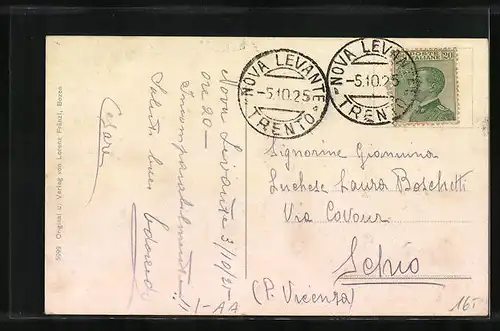 NOVA LEVANTE
-5.10.25
TRENTO
NOVA LEVANTE
-5.10.25
TRENTO
POSTE ITALIANE 20
Nova Levante 3/10/25
ore 20 -
Incomparabilmente!!
Saluti, baci
Cesare
Signorine Giannina
Luchese Laura Boschetti
Via Cavour
Schio
(P. Vicenza)
5666 Original u. Verlag von Lorenz Fränzl, Bozen
165